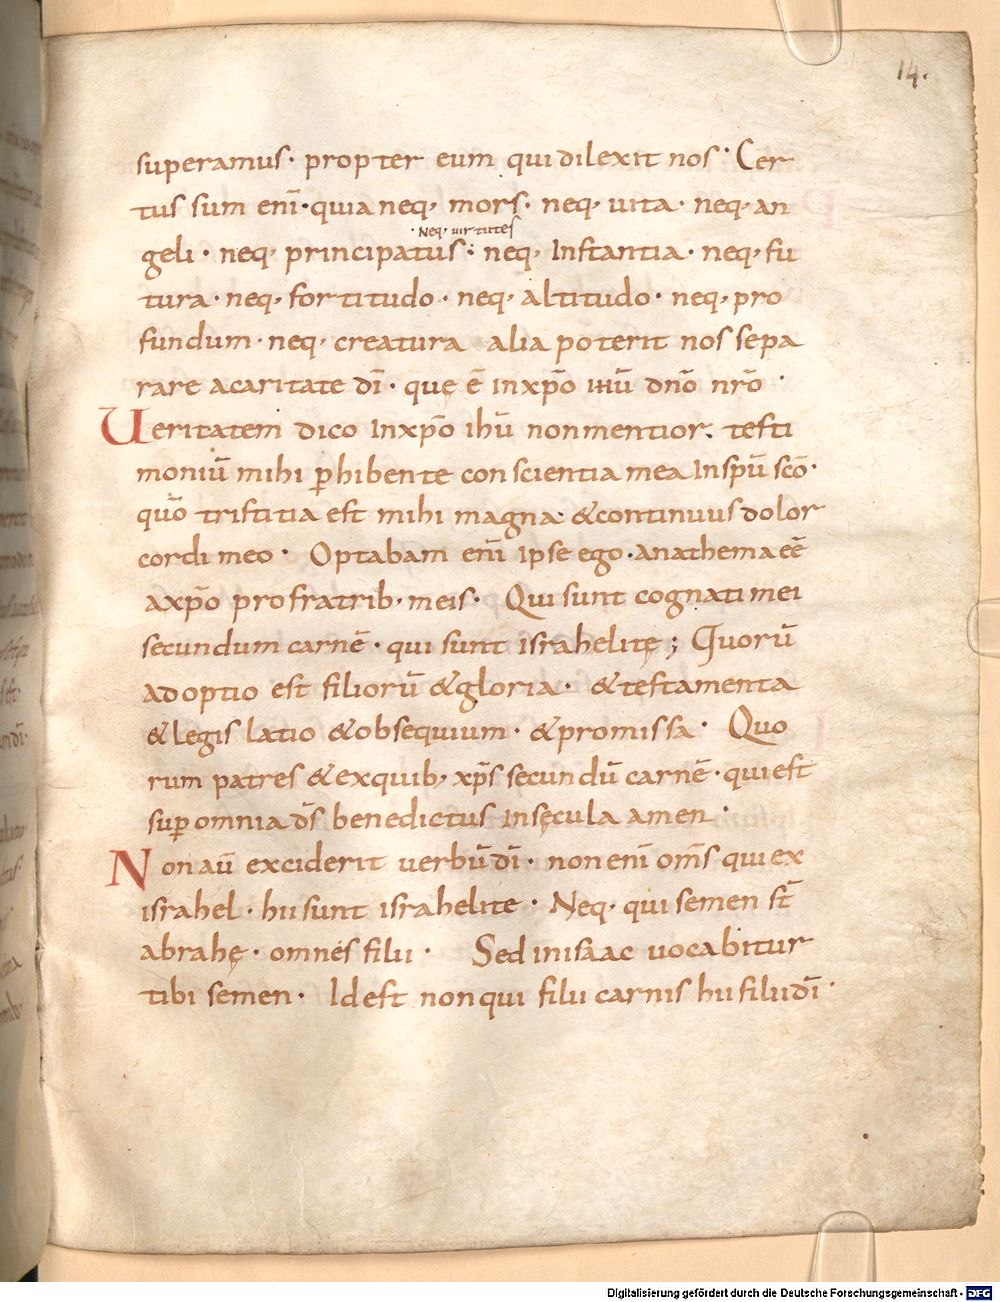 14.
superamus· propter eum qui dilexit nos· Cer
tus sum enī· quia neq, mors· neq, uita· neq, an
·Neq, uirtutes
geli· neq, principatus: neq, Instantia· neq, fu
tura· neq, fortitudo· neq, altitudo· neq, pro
fundum· neq, creatura alia poterit nos sepa
rare a caritate dī· quę ē In xp̄o ihū dn̄o nr̄o·
Ueritatem dico In xp̄o ihū non mentior. testi
moniū mihi p̱hibente conscientia mea In spū scō·
qūo tristitia est mihi magna &continuus dolor
cordi meo· Optabam enī ipse ego· anathema eē
a xp̄o pro fratrib, meis· Qui sunt cognati mei
secundum carnē· qui sunt israhelitę; Quorū
adoptio est filiorū &gloria· &testamenta
&legis latio &obsequium· &promissa· Quo
rum patres &exquib, xp̄s secundū carnē· qui est
sup̱ omnia d̄s benedictus In sęcula amen·
Non aū exciderit uerbū dī· non enī om̄s qui ex
israhel· hii sunt israhelite· Neq, qui semen st̄
abrahę· omnes filii· Sed in isaac uocabitur
tibi semen· Id est non qui filii carnis hii filii dī·
Digitalisierung gefördert durch die Deutsche Forschungsgemeinschaft - DFG